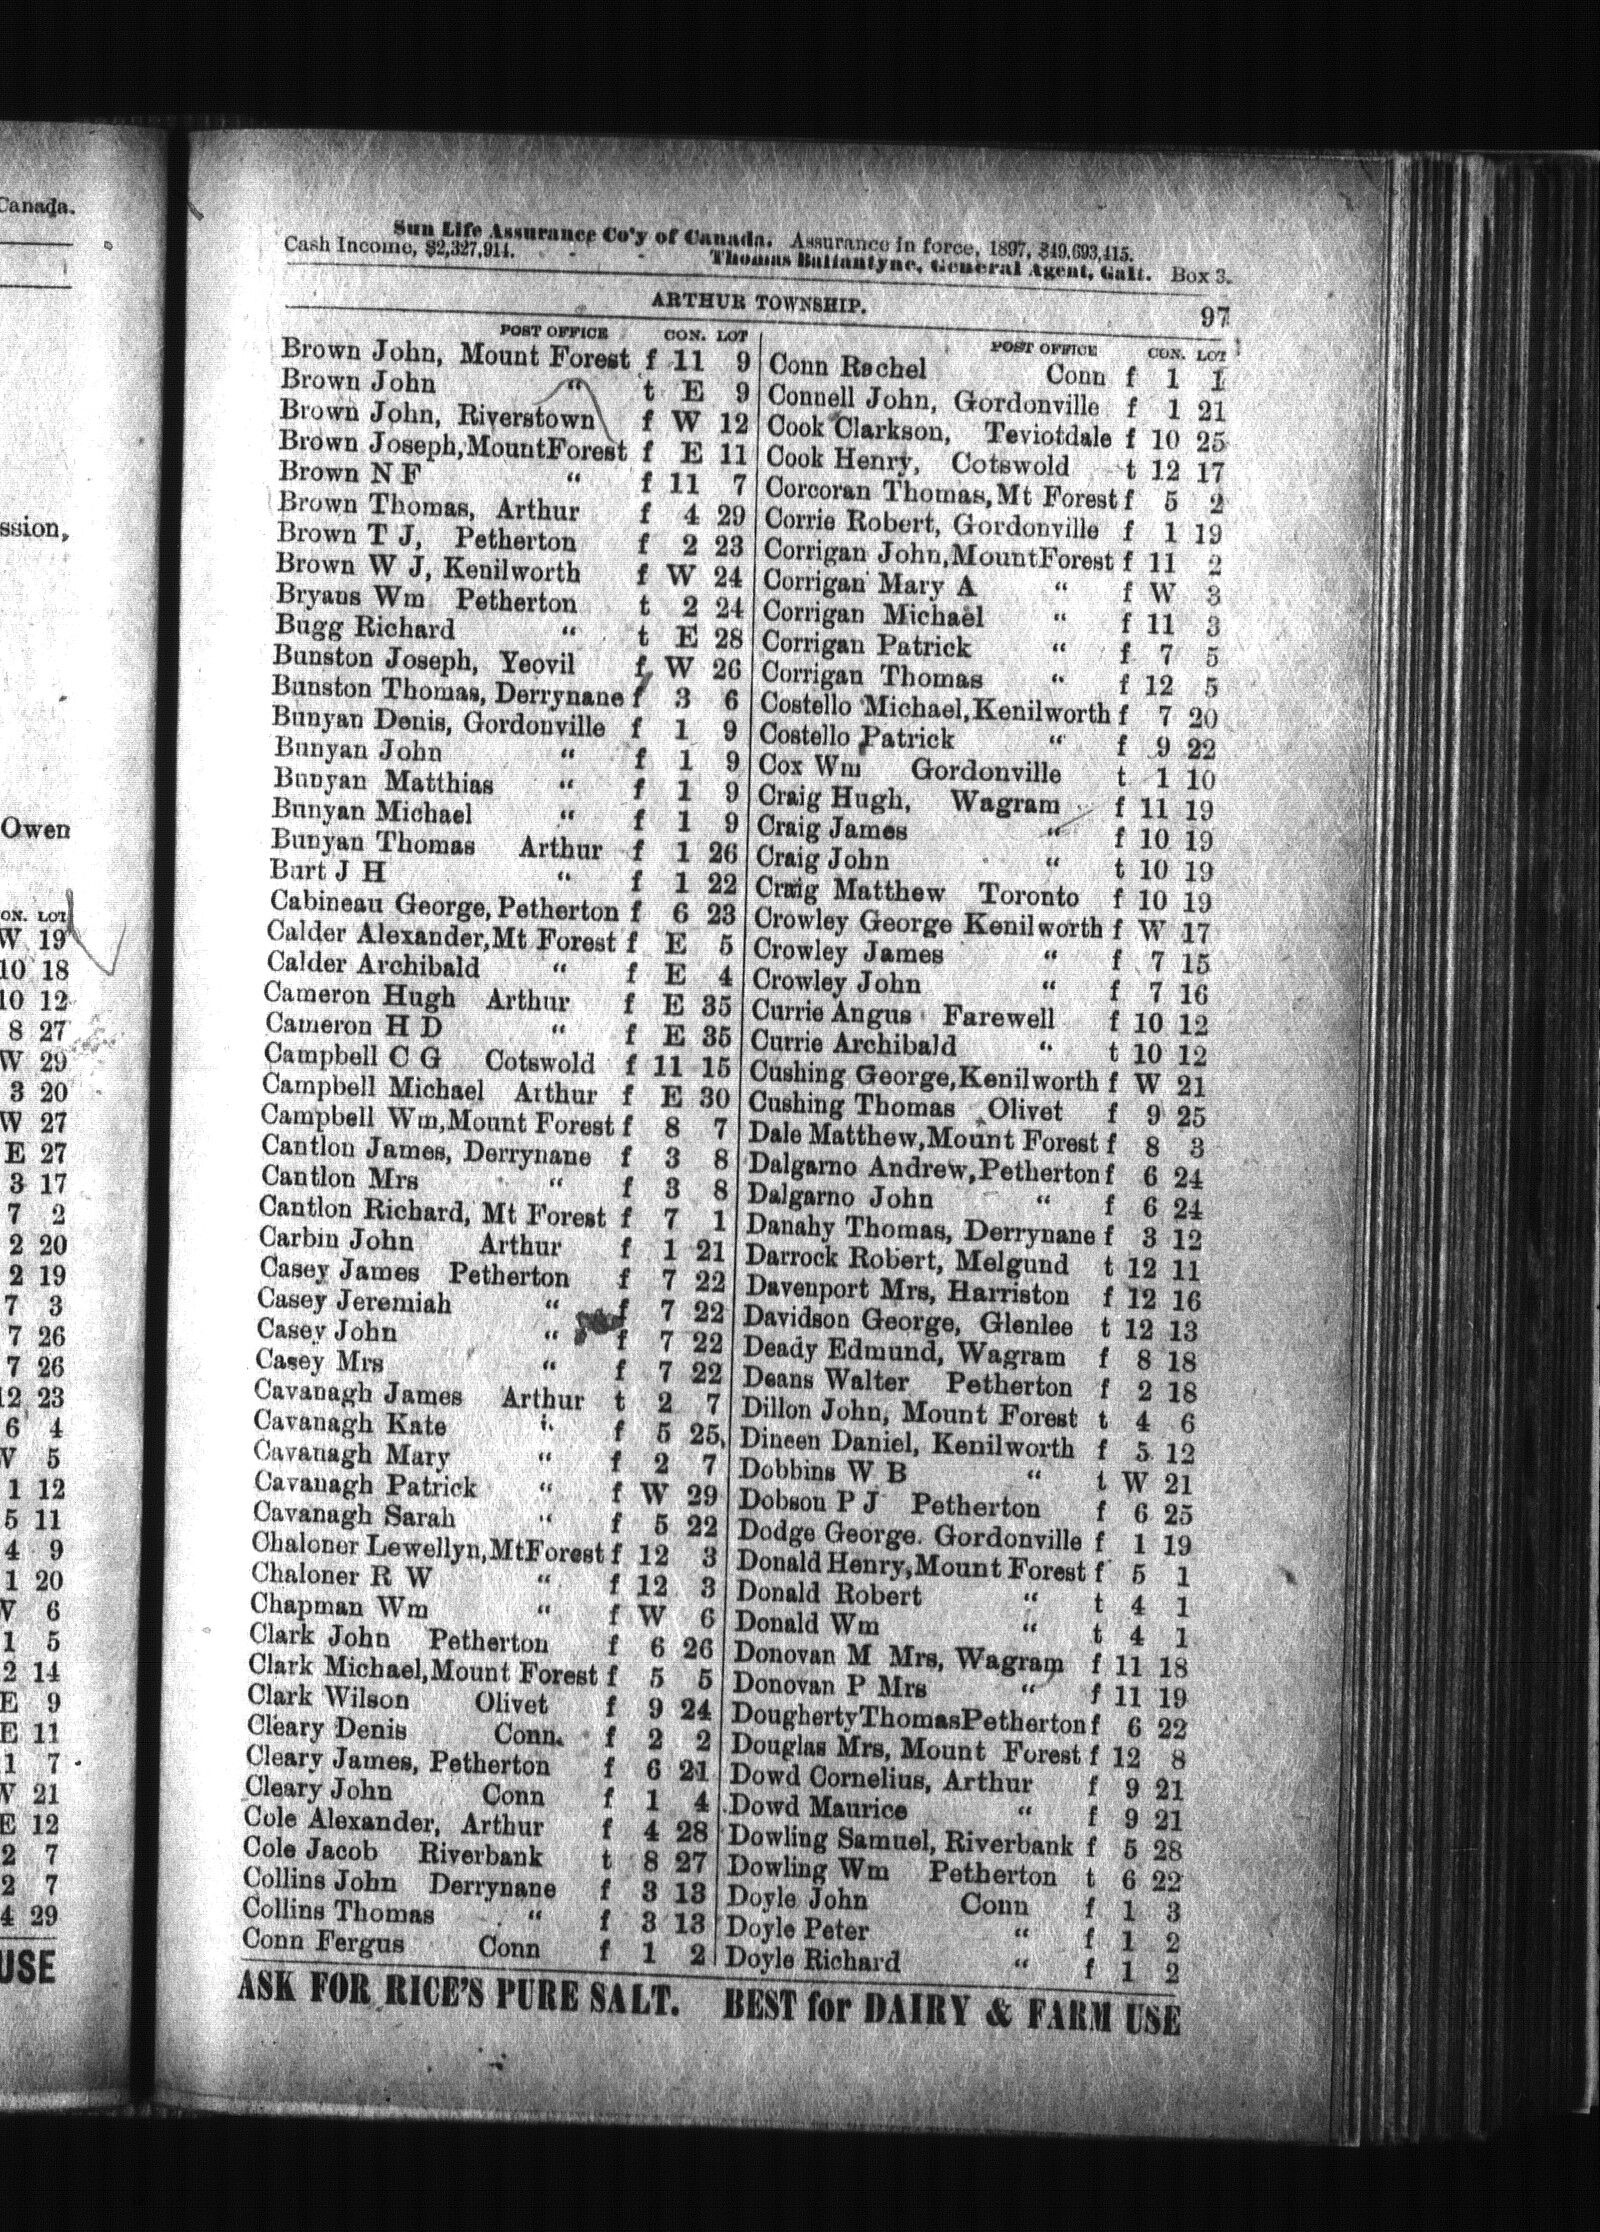 Canada.
ssion,
Owen
ON. LOT
W 19
10 18
10 12
8 27
W 29
3 20
W 27
E 27
3 17
7 2
2 20
2 19
7 3
7 26
7 26
12 23
6 4
W 5
1 12
5 11
4 9
1 20
W 6
1 5
2 14
E 9
E 11
1 7
W 21
E 12
2 7
2 7
4 29
USE
Sun Life Assurance Co'y of Canada. Assurance in force, 1897, $49,693,415.
Cash Income, $2,327,914. Thomas Ballantyne, General Agent, Galt. Box 3.
ARTHUR TOWNSHIP. 97
POST OFFICE CON. LOT
Brown John, Mount Forest f 11 9
Brown John “ t E 9
Brown John, Riverstown f W 12
Brown Joseph, Mount Forest f E 11
Brown N F “ f 11 7
Brown Thomas, Arthur f 4 29
Brown T J, Petherton f 2 23
Brown W J, Kenilworth f W 24
Bryans Wm Petherton t 2 24
Bugg Richard “ t E 28
Bunston Joseph, Yeovil f W 26
Bunston Thomas, Derrynane f 3 6
Bunyan Denis, Gordonville f 1 9
Bunyan John “ f 1 9
Bunyan Matthias “ f 1 9
Bunyan Michael “ f 1 9
Bunyan Thomas Arthur f 1 26
Burt J H “ f 1 22
Cabineau George, Petherton f 6 23
Calder Alexander, Mt Forest f E 5
Calder Archibald “ f E 4
Cameron Hugh Arthur f E 35
Cameron H D “ f E 35
Campbell C G Cotswold f 11 15
Campbell Michael Arthur f E 30
Campbell Wm, Mount Forest f 8 7
Cantlon James, Derrynane f 3 8
Cantlon Mrs “ f 3 8
Cantlon Richard, Mt Forest f 7 1
Carbin John Arthur f 1 21
Casey James Petherton f 7 22
Casey Jeremiah “ f 7 22
Casey John “ f 7 22
Casey Mrs “ f 7 22
Cavanagh James Arthur t 2 7
Cavanagh Kate “ f 5 25
Cavanagh Mary “ f 2 7
Cavanagh Patrick “ f W 29
Cavanagh Sarah “ f 5 22
Chaloner Lewellyn, Mt Forest f 12 3
Chaloner R W “ f 12 3
Chapman Wm “ f W 6
Clark John Petherton f 6 26
Clark Michael, Mount Forest f 5 5
Clark Wilson Olivet f 9 24
Cleary Denis Conn. f 2 2
Cleary James, Petherton f 6 21
Cleary John Conn f 1 4
Cole Alexander, Arthur f 4 28
Cole Jacob Riverbank t 8 27
Collins John Derrynane f 3 13
Collins Thomas “ f 3 13
Conn Fergus Conn f 1 2
POST OFFICE CON. LOT
Conn Rachel Conn f 1 1
Connell John, Gordonville f 1 21
Cook Clarkson, Teviotdale f 10 25
Cook Henry, Cotswold t 12 17
Corcoran Thomas, Mt Forest f 5 2
Corrie Robert, Gordonville f 1 19
Corrigan John, Mount Forest f 11 2
Corrigan Mary A “ f W 3
Corrigan Michael “ f 11 3
Corrigan Patrick “ f 7 5
Corrigan Thomas “ f 12 5
Costello Michael, Kenilworth f 7 20
Costello Patrick “ f 9 22
Cox Wm Gordonville t 1 10
Craig Hugh, Wagram f 11 19
Craig James “ f 10 19
Craig John “ t 10 19
Craig Matthew Toronto f 10 19
Crowley George Kenilworth f W 17
Crowley James “ f 7 15
Crowley John “ f 7 16
Currie Angus Farewell f 10 12
Currie Archibald “ t 10 12
Cushing George, Kenilworth f W 21
Cushing Thomas Olivet f 9 25
Dale Matthew, Mount Forest f 8 3
Dalgarno Andrew, Petherton f 6 24
Dalgarno John “ f 6 24
Danahy Thomas, Derrynane f 3 12
Darrock Robert, Melgund t 12 11
Davenport Mrs, Harriston f 12 16
Davidson George, Glenlee t 12 13
Deady Edmund, Wagram f 8 18
Deans Walter Petherton f 2 18
Dillon John, Mount Forest t 4 6
Dineen Daniel, Kenilworth f 5 12
Dobbins W B “ t W 21
Dobson P J Petherton f 6 25
Dodge George. Gordonville f 1 19
Donald Henry, Mount Forest f 5 1
Donald Robert “ t 4 1
Donald Wm “ t 4 1
Donovan M Mrs, Wagram f 11 18
Donovan P Mrs “ f 11 19
Dougherty Thomas Petherton f 6 22
Douglas Mrs, Mount Forest f 12 8
Dowd Cornelius, Arthur f 9 21
Dowd Maurice “ f 9 21
Dowling Samuel, Riverbank f 5 28
Dowling Wm Petherton t 6 22
Doyle John Conn f 1 3
Doyle Peter “ f 1 2
Doyle Richard “ f 1 2
ASK FOR RICE'S PURE SALT. BEST for DAIRY & FARM USE